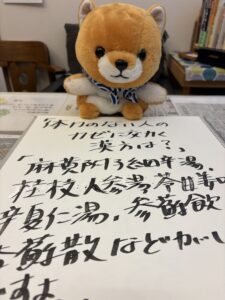 「体力のない人の
カゼに効く
漢方は?」
「麻黄附子細辛湯、
桂枝人参湯、苓甘姜
辛夏仁湯、参蘇飲
香蘇散などがいい
ですよ